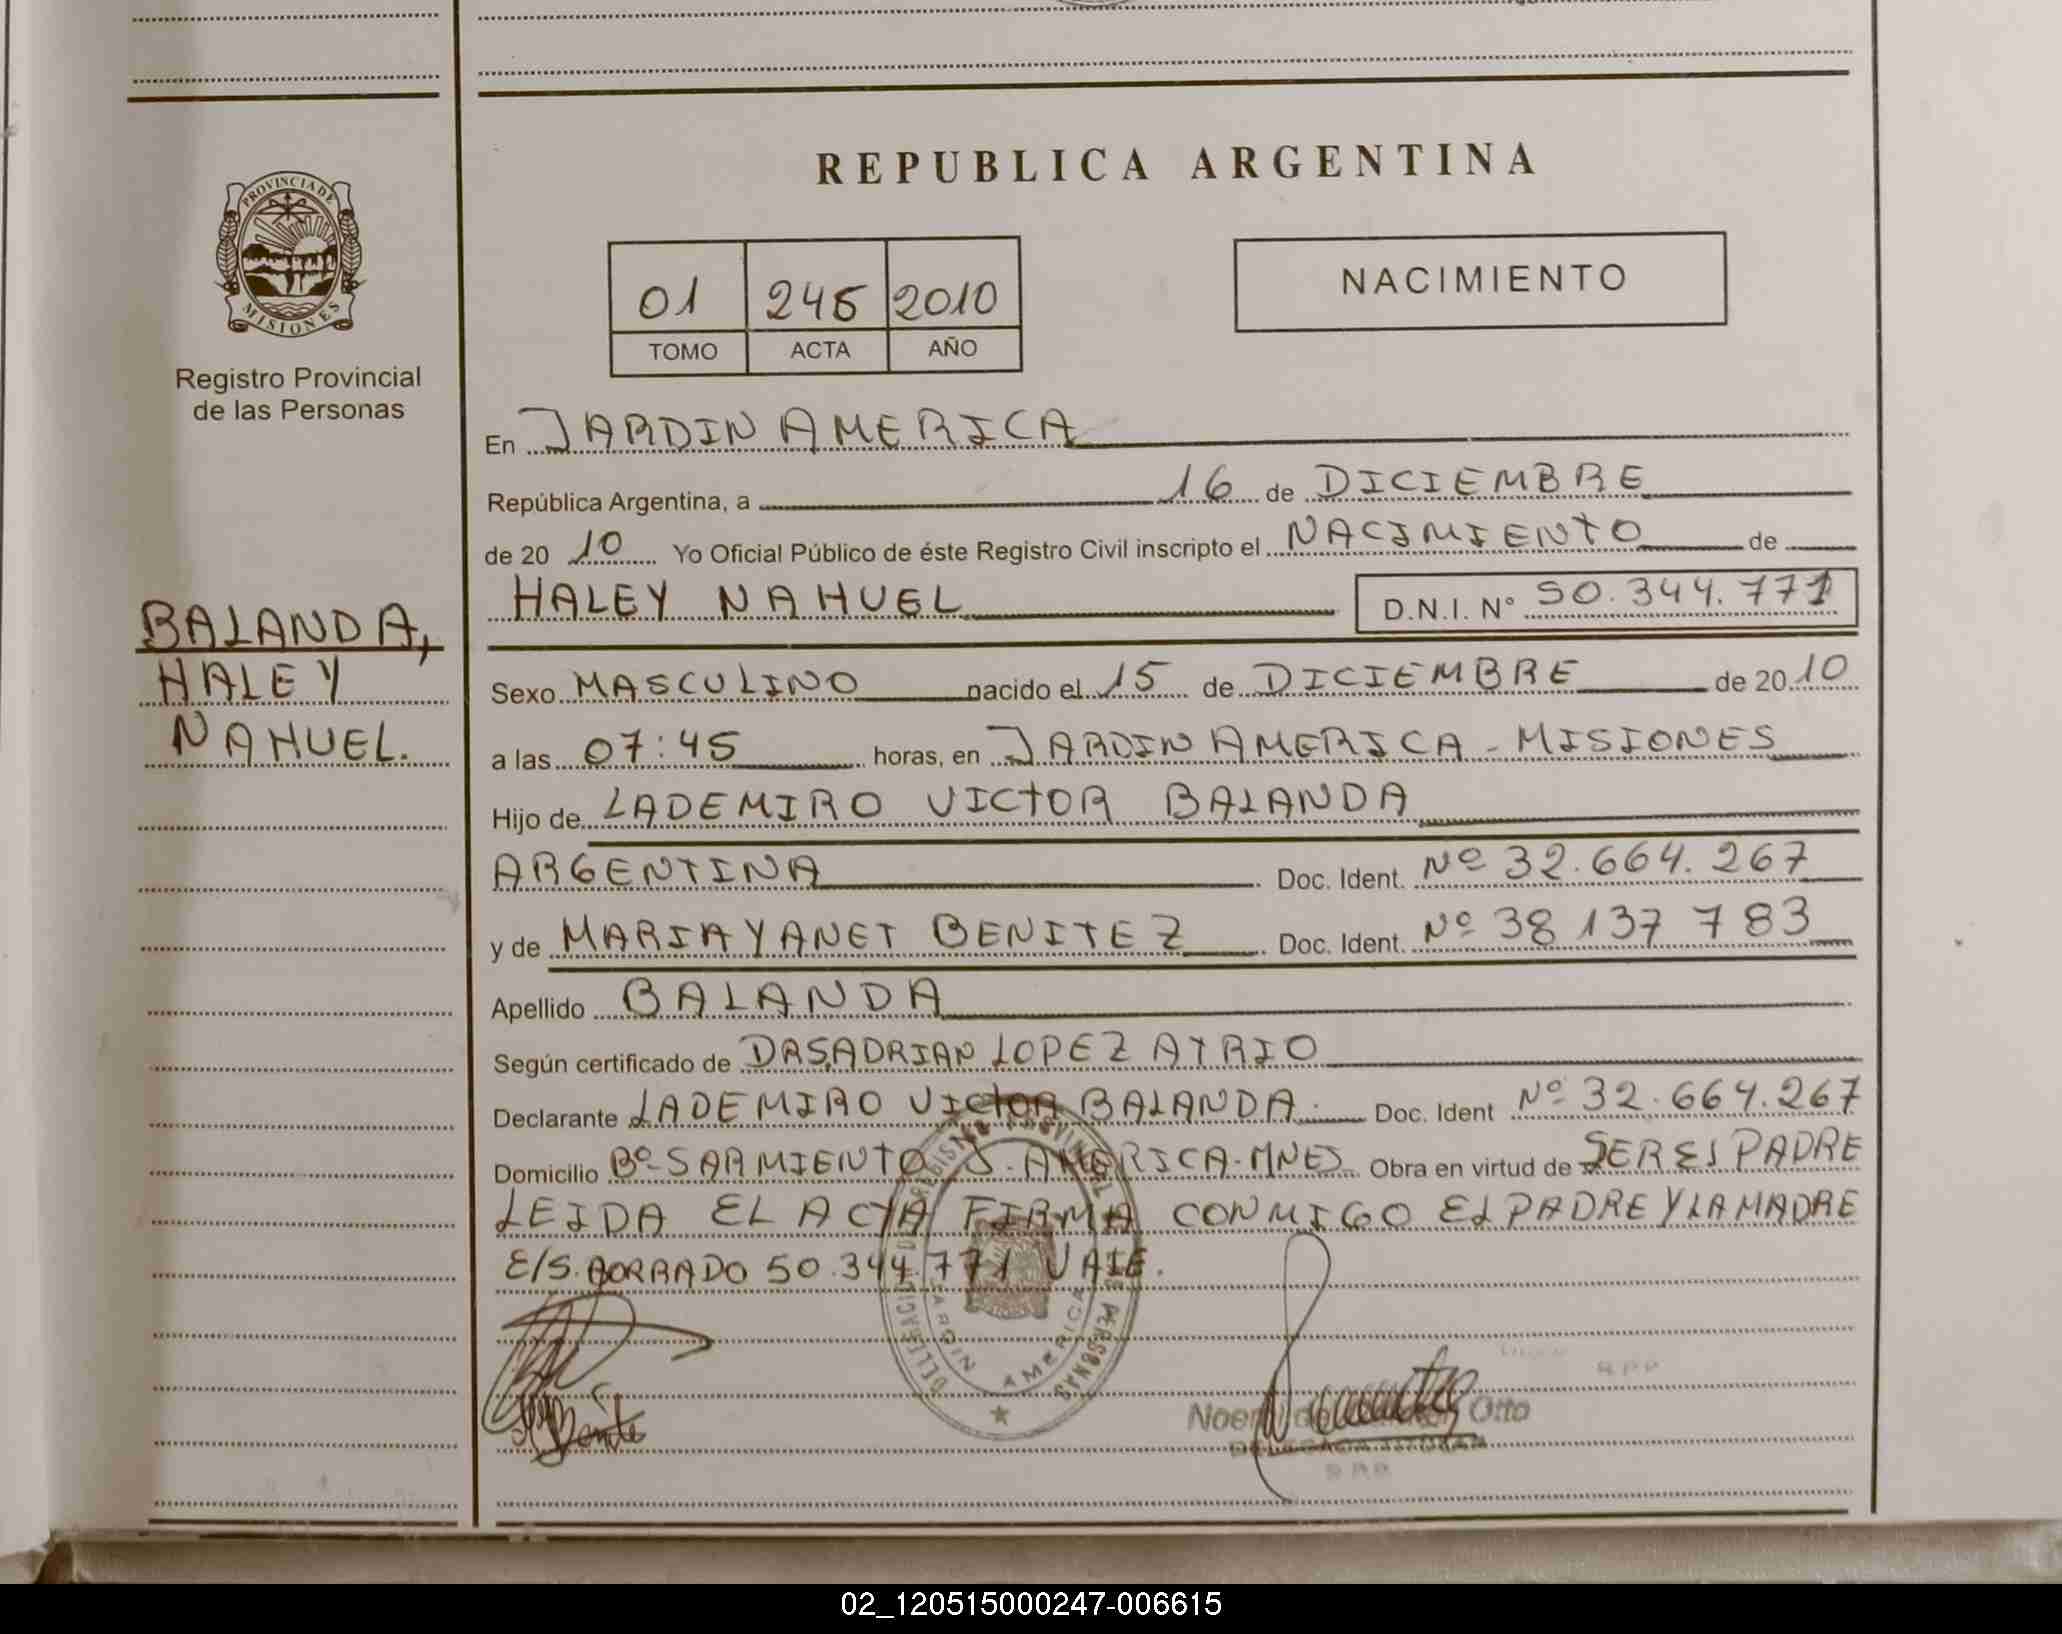 PROVINCIA DE
MISIONES
Registro Provincial
de las Personas
BALANDA,
HALEY
NAHUEL.
REPUBLICA ARGENTINA
01 245 2010
TOMO ACTA AÑO
NACIMIENTO
En JARDIN AMERICA
República Argentina, a 16 de DICIEMBRE
de 20 10 Yo Oficial Público de éste Registro Civil inscripto el NACIMIENTO de
HALEY NAHUEL D.N.I. N° 50.344.771
Sexo MASCULINO nacido el 15 de DICIEMBRE de 20 10
a las 07:45 horas, en JARDIN AMERICA - MISIONES
Hijo de LADEMIRO VICTOR BALANDA
ARGENTINA Doc. Ident. Nº 32.664.267
y de MARIA YANET BENITEZ Doc. Ident. Nº 38 137 783
Apellido BALANDA
Según certificado de DRS. ADRIAN LOPEZ AYRIO
Declarante LADEMIRO VICTOR BALANDA. Doc. Ident Nº 32.664.267
Domicilio Bº SARMIENTO J. AMERICA-MNES Obra en virtud de SER EL PADRE
LEIDA EL ACTA FIRMA CONMIGO EL PADRE Y LA MADRE
E/S. BORRADO 50.344.771 VALE.
DELEGACION REGISTRO PROVINCIAL DE PERSONAS
JARDIN AMERICA
Otto
02_120515000247-006615